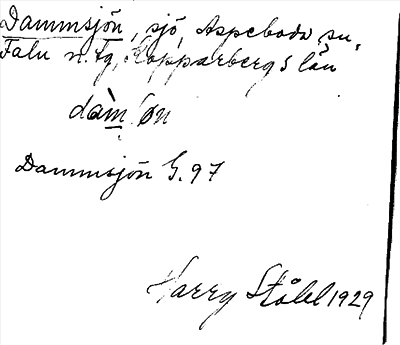 Dammsjön, sjö, Aspeboda sn,
Falu n. tg, Kopparbergs län
dam̀:øn
Dammsjön G. 97
Harry Ståhl 1929